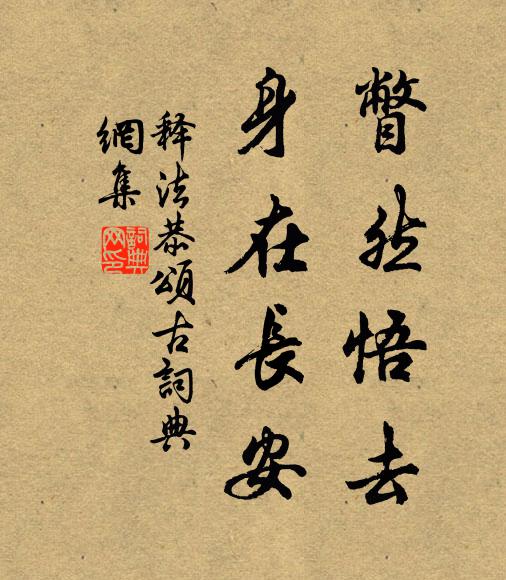 瞥然悟去
身在長安
释法恭頌古詞典
網集
詞典
网印